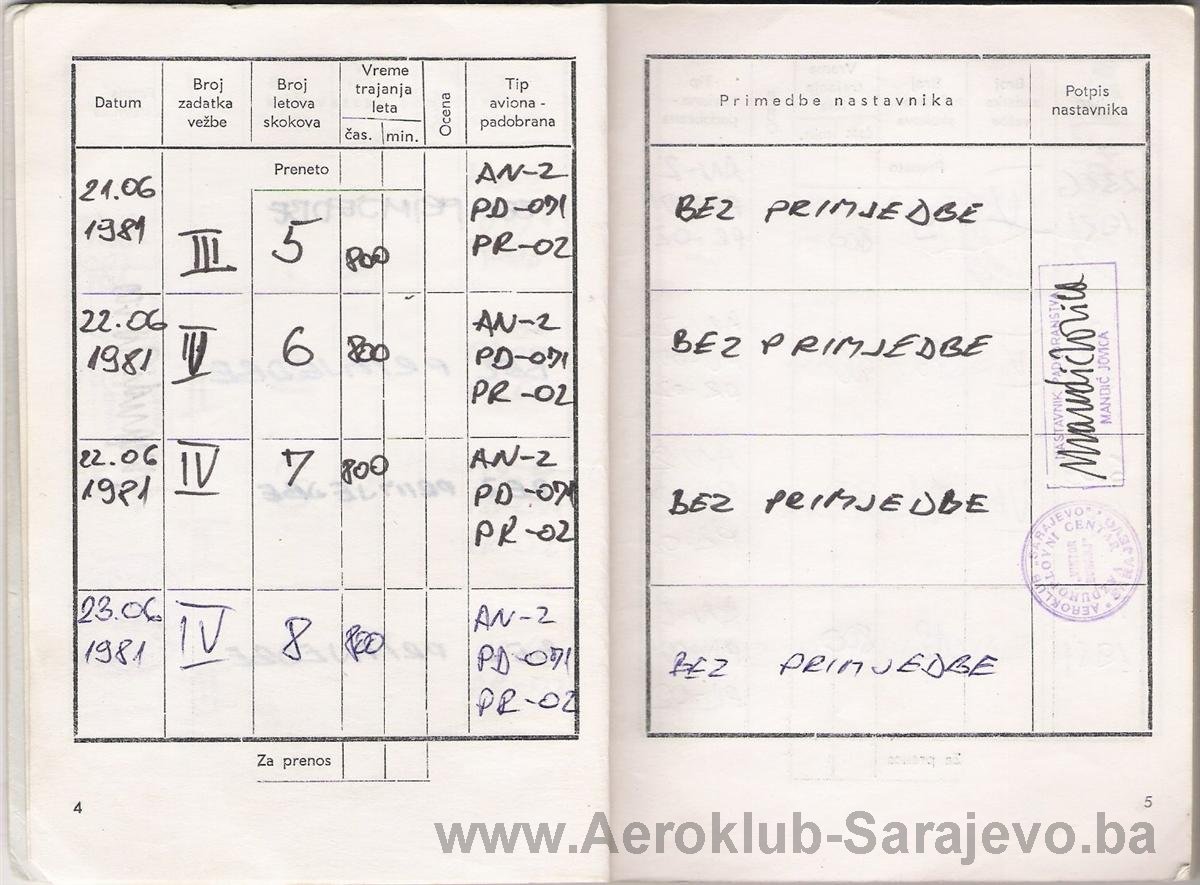 Datum
Broj
zadatka
vežbe
Broj
letova
skokova
Vreme
trajanja
leta
čas. min.
Ocena
Tip
aviona -
padobrana
Preneto
21.06
1981
III
5
800
AN-2
PD-071
PR-02
22.06
1981
IV
6
800
AN-2
PD-071
PR-02
22.06
1981
IV
7
800
AN-2
PD-071
PR-02
23.06.
1981
IV
8
800
AN-2
PD-071
PR-02
Za prenos
4
Primedbe nastavnika
Potpis
nastavnika
BEZ PRIMJEDBE
BEZ PRIMJEDBE
BEZ PRIMJEDBE
BEZ PRIMJEDBE
NASTAVNIK PADOBRANSTVA
Mandić Jovica
MANDIĆ JOVICA
AEROKLUB „SARAJEVO"
VAZDUHOPLOVNI CENTAR
SARAJEVO
5
www.Aeroklub-Sarajevo.ba